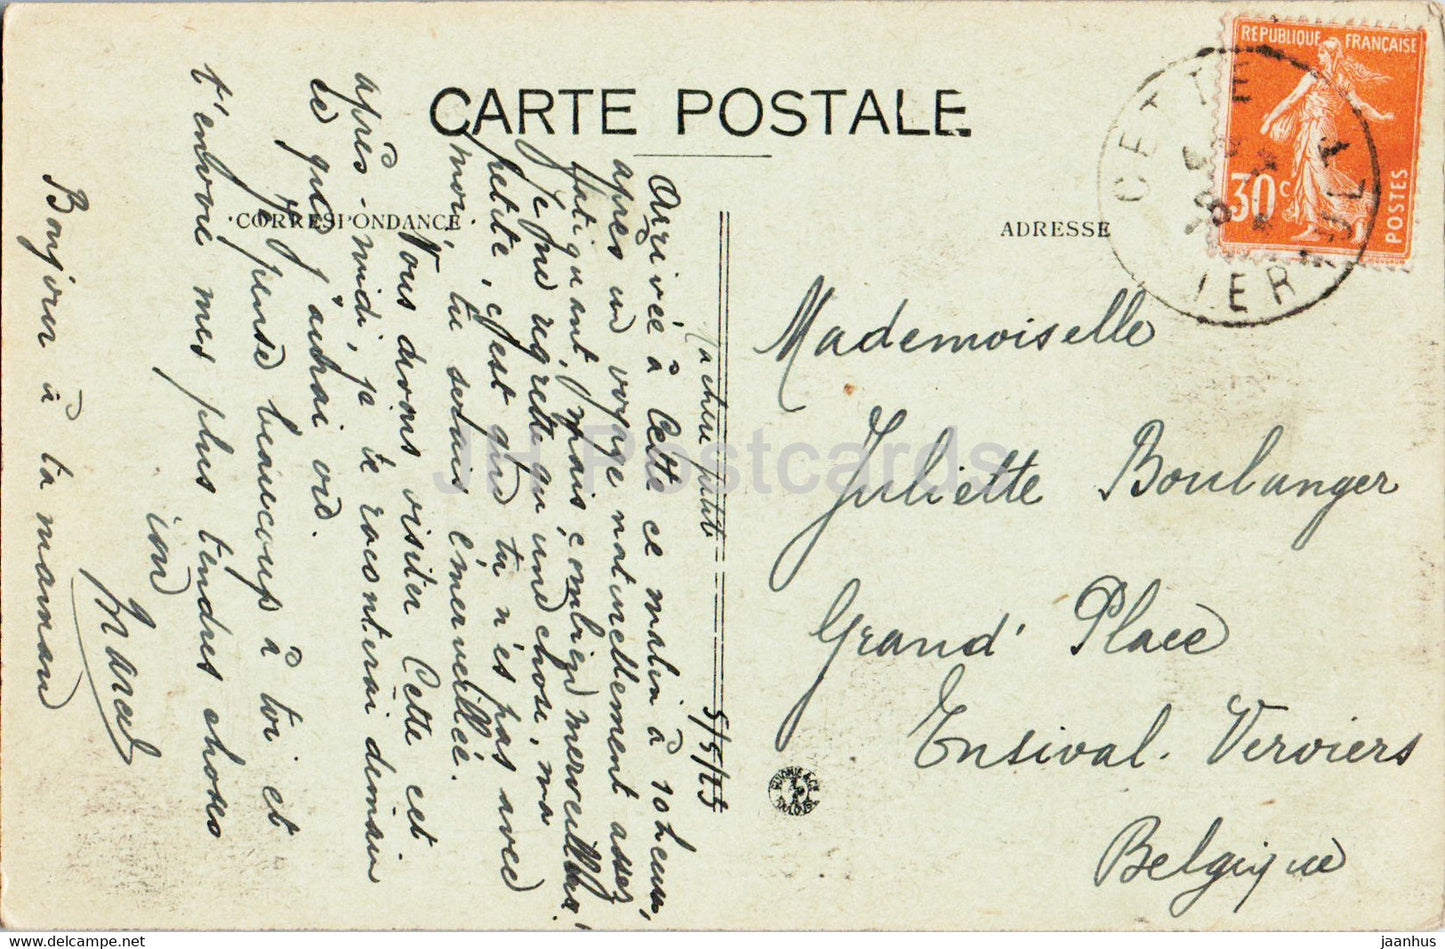 CARTE POSTALE
CORRESPONDANCE
ADRESSE
REPUBLIQUE FRANÇAISE
30c
POSTES
CETTE
5/5/25
Ma chère petite
Arrivée à Cette ce matin à 10 heures,
après un voyage naturellement assez
fatiguant, mais combien merveilleux!
Je ne regrette qu'une chose, ma
petite, c'est que tu n'es pas avec
moi, tu serais émerveillée.
Nous devons visiter Cette cet
après-midi, je te raconterai demain
ce que j'aurai vu.
Je pense beaucoup à toi et
t'envoie mes plus tendres choses
ion
Marcel
Bonjour à ta maman
Mademoiselle
Juliette Boulanger
Grand' Place
Ensival. Verviers
Belgique
JH Postcards
hippostcard.com/store/jaanhus
jaanhus